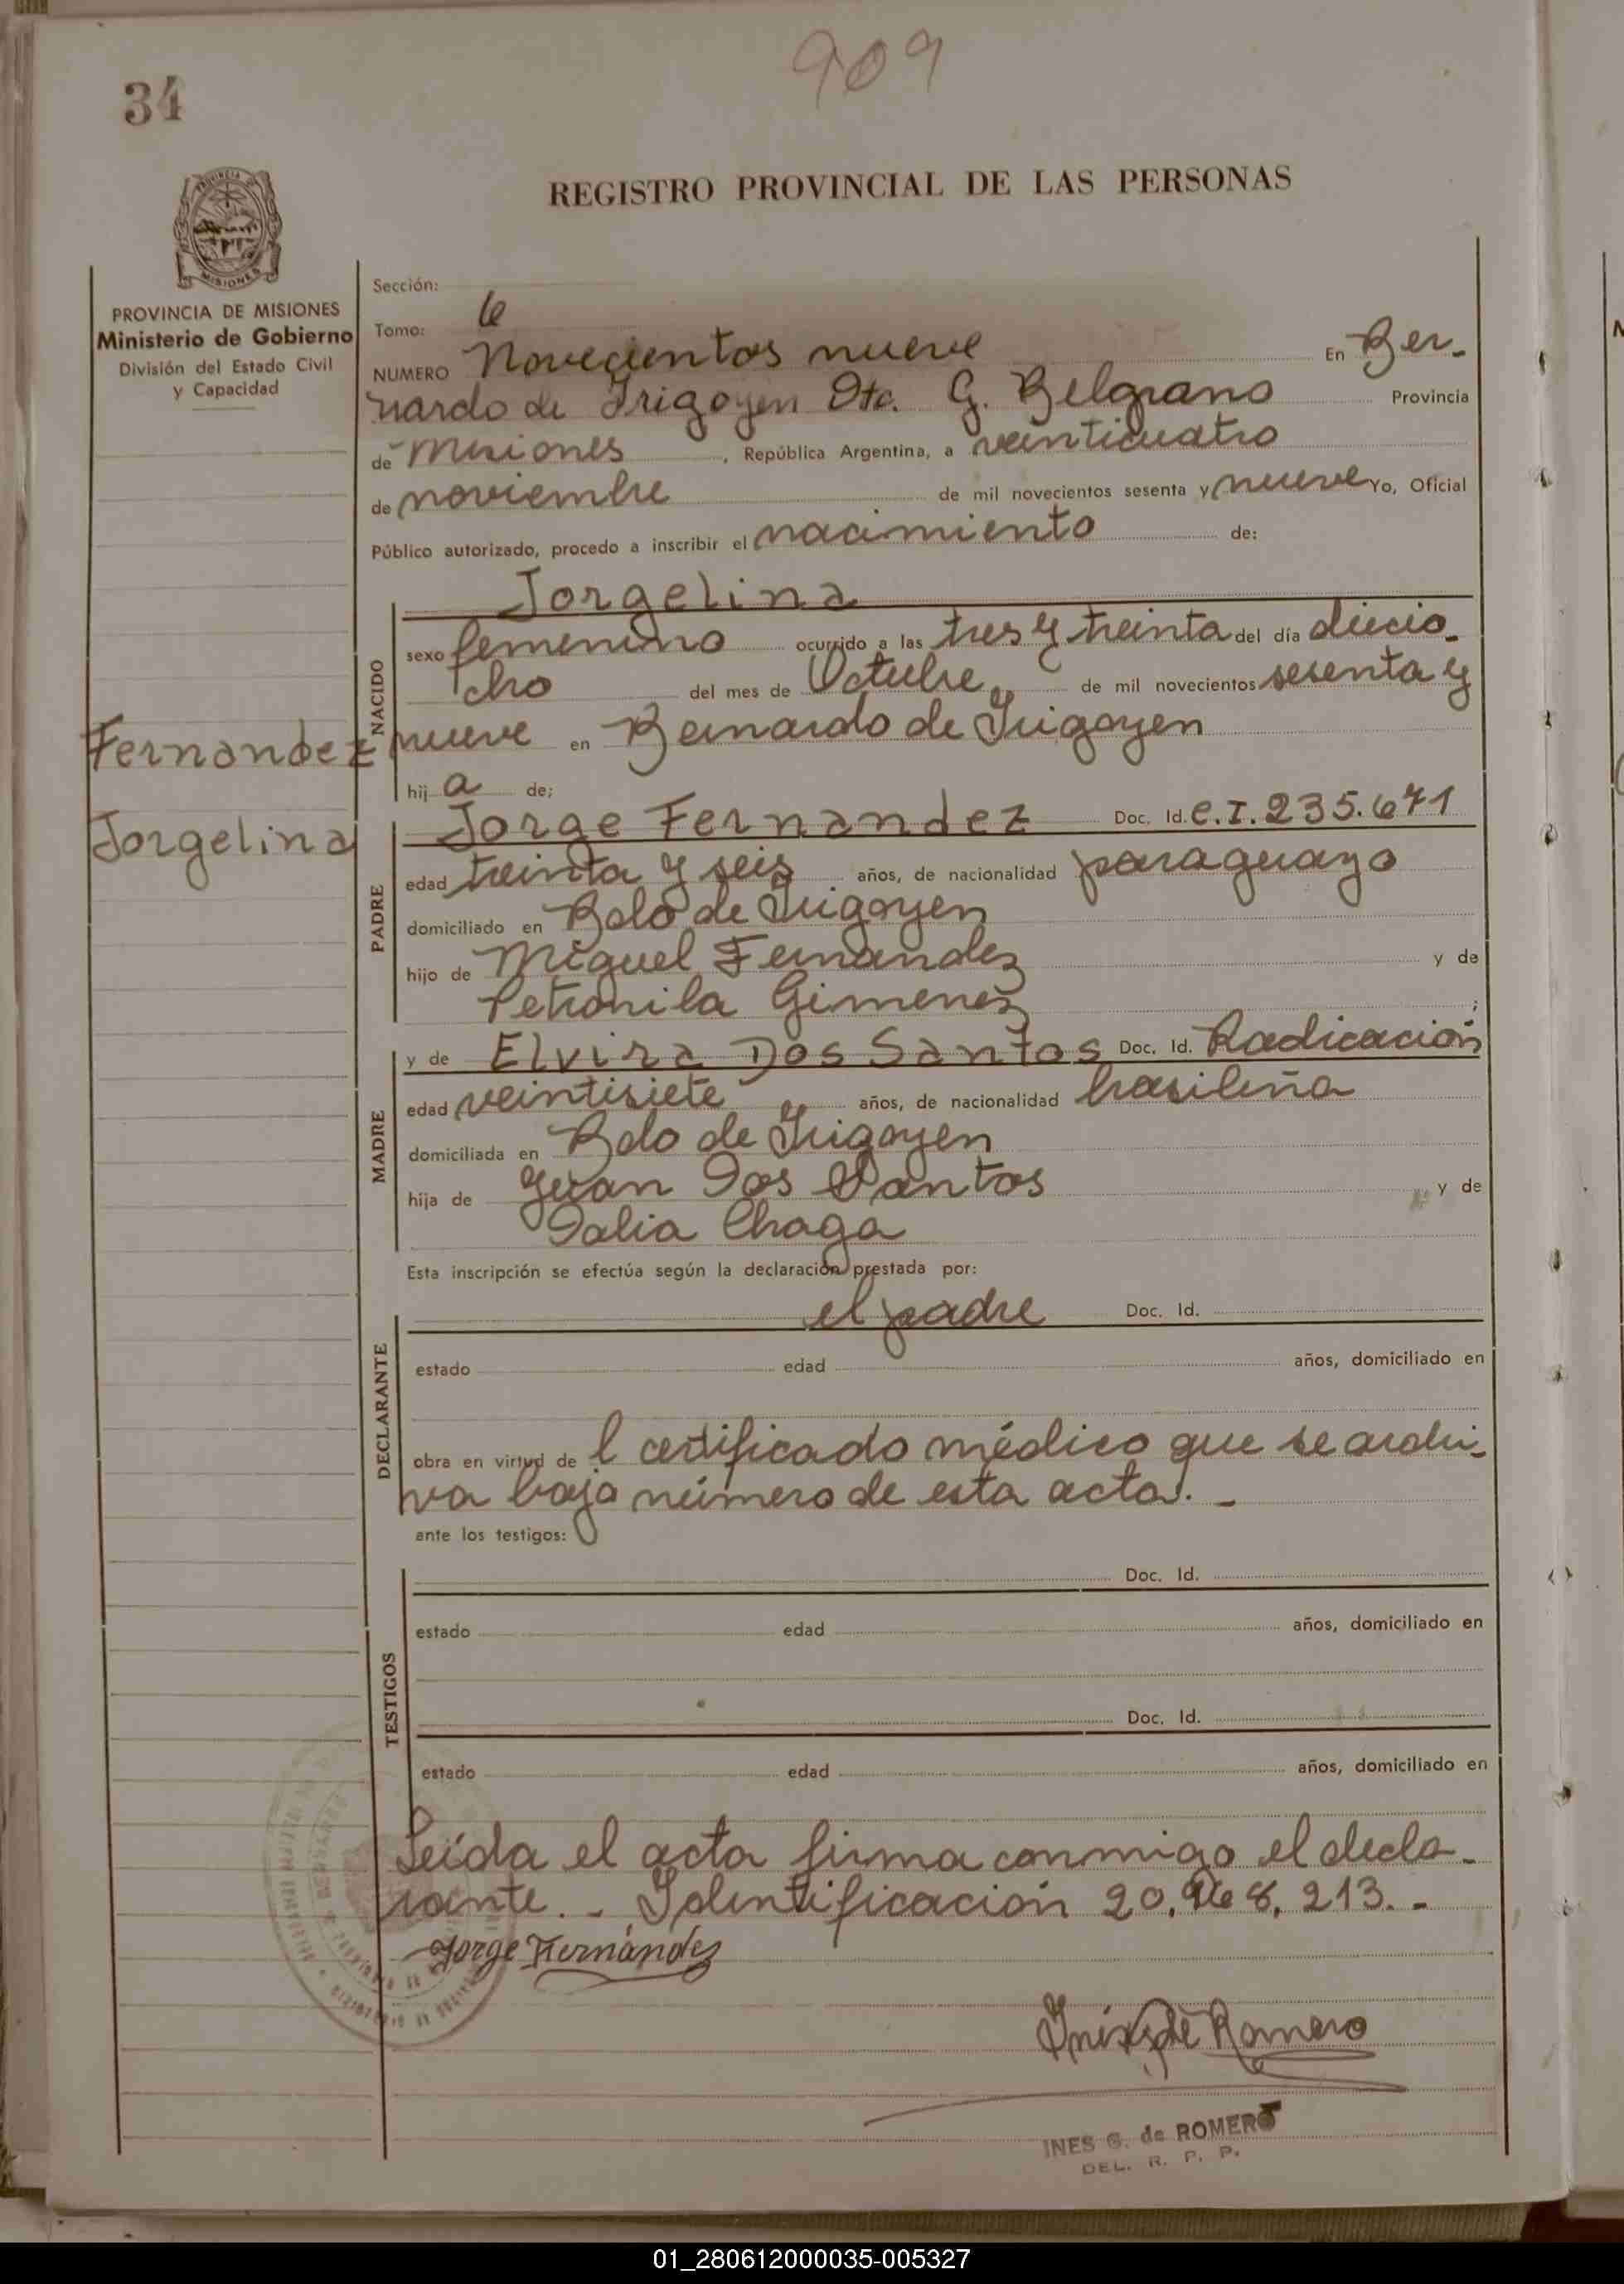 909
34
REGISTRO PROVINCIAL DE LAS PERSONAS
PROVINCIA DE MISIONES
Ministerio de Gobierno
División del Estado Civil
y Capacidad
Sección:
Tomo: 6
NUMERO Novecientos nueve En Ber-
nardo de Irigoyen Dto. G. Belgrano Provincia
de Misiones, República Argentina, a veinticuatro
de noviembre de mil novecientos sesenta y nueve Yo, Oficial
Público autorizado, procedo a inscribir el nacimiento de:
NACIDO
Jorgelina
sexo femenino ocurrido a las tres y treinta del día diecio-
cho del mes de Octubre de mil novecientos sesenta y
nueve en Bernardo de Irigoyen
Fernandez
Jorgelina
hij a de;
PADRE
Jorge Fernandez Doc. Id. C.I. 235.671
edad treinta y seis años, de nacionalidad paraguayo
domiciliado en Bdo de Irigoyen
hijo de Miguel Fernandez y de
Petronila Gimenez ;
MADRE
y de Elvira Dos Santos Doc. Id. Radicación
edad veintisiete años, de nacionalidad brasileña
domiciliada en Bdo de Irigoyen
hija de Juan Dos Santos y de
Dalia Chaga
Esta inscripción se efectúa según la declaración prestada por:
DECLARANTE
el padre Doc. Id.
estado edad años, domiciliado en
obra en virtud de l certificado médico que se archi-
va bajo número de esta acta. -
ante los testigos:
TESTIGOS
Doc. Id.
estado edad años, domiciliado en
Doc. Id.
estado edad años, domiciliado en
Leída el acta firma conmigo el decla-
rante. - Identificación 20. 213. -
Jorge Fernández
Inés G de Romero
INES G. de ROMERO
DEL. R. P. P.
01_280612000035-005327